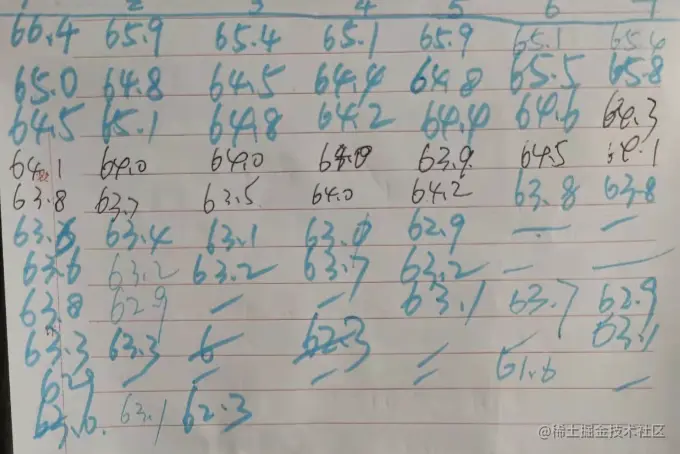 1 2 3 4 5 6 7
66.4 65.9 65.4 65.1 65.9 65.1 65.4
65.0 64.8 64.5 64.4 64.8 65.5 65.8
64.5 65.1 64.8 64.2 64.4 64.6 64.3
64.1 64.0 64.0 63.9 64.5 64.1
63.8 63.7 63.5 64.0 64.2 63.8 63.8
63.6 63.4 63.1 63.0 62.9 — —
63.6 63.2 63.2 63.7 63.2 — —
63.8 62.9 — — 63.1 63.7 62.9
63.3 63.3 62.3 — — 63.1
— — — — 61.6 —
63.0. 63.1 62.3
@稀土掘金技术社区